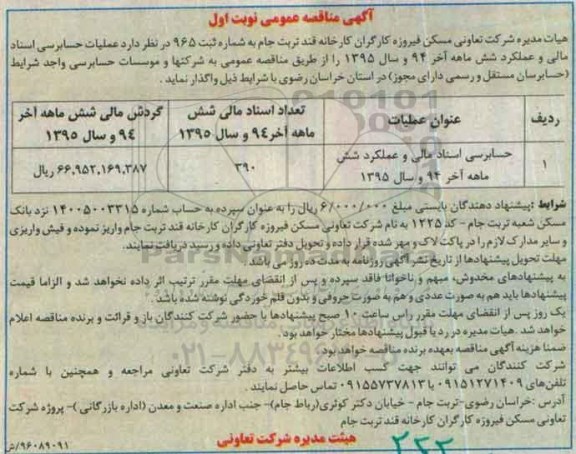 آگهی مناقصه عمومی نوبت اول
هیات مدیره شرکت تعاونی مسکن فیروزه کارگران کارخانه قند تربت جام به شماره ثبت ۹۶۵ در نظر دارد عملیات حسابرسی اسناد
مالی و عملکرد شش ماهه آخر ۹۴ و سال ۱۳۹۵ را از طریق مناقصه عمومی به شرکتها و موسسات حسابرسی واجد شرایط
(حسابرسان مستقل و رسمی دارای مجوز) در استان خراسان رضوی با شرایط ذیل واگذار نماید.
ردیف عنوان عملیات تعداد اسناد مالی شش ماهه آخر ۹۴ و سال ۱۳۹۵ گردش مالی شش ماهه آخر ۹۴ و سال ۱۳۹۵
۱ حسابرسی اسناد مالی و عملکرد شش ماهه آخر ۹۴ و سال ۱۳۹۵ ۳۹۰ ۶۶,۹۵۲,۱۶۹,۳۸۷ ریال
شرایط: پیشنهاد دهندگان بایستی مبلغ ۶/۰۰۰/۰۰۰ ریال را به عنوان سپرده به حساب شماره ۱۴۰۰۵۰۰۳۳۱۵ نزد بانک
مسکن شعبه تربت جام - کد ۱۲۲۵ به نام شرکت تعاونی مسکن فیروزه کارگران کارخانه قند تربت جام واریز نموده و فیش واریزی
و سایر مدارک لازم را در پاکت لاک و مهر شده قرار داده و تحویل دفتر تعاونی داده و رسید دریافت نمایند.
مهلت تحویل پیشنهادها از تاریخ نشر آگهی روزنامه به مدت ده روز می باشد.
به پیشنهادهای مخدوش، مبهم و ناخوانا فاقد سپرده و پس از انقضای مهلت مقرر ترتیب اثر داده نخواهد شد و الزاما قیمت
پیشنهادها باید هم به صورت عددی و هم به صورت حروفی و بدون قلم خوردگی نوشته شده باشد.
یک روز پس از انقضای مهلت مقرر راس ساعت ۱۰ صبح پیشنهادها با حضور شرکت کنندگان باز و قرائت و برنده مناقصه اعلام
خواهد شد. هیات مدیره در رد یا قبول پیشنهادها مختار خواهد بود.
ضمنا هزینه آگهی مناقصه بعهده برنده مناقصه خواهد بود.
شرکت کنندگان می توانند جهت کسب اطلاعات بیشتر به دفتر شرکت تعاونی مراجعه و همچنین با شماره
تلفن‌های ۰۹۱۵۱۲۷۱۴۰۹ و ۰۹۱۵۵۷۳۷۸۱۳ تماس حاصل نمایند.
آدرس: خراسان رضوی-تربت جام - خیابان دکتر کوثری(رباط جام)- جنب اداره صنعت و معدن (اداره بازرگانی )- پروژه شرکت
تعاونی مسکن فیروزه کارگران کارخانه قند تربت جام
هیئت مدیره شرکت تعاونی
۹۶۰۸۹۰۹۱/ش
۲۳۲